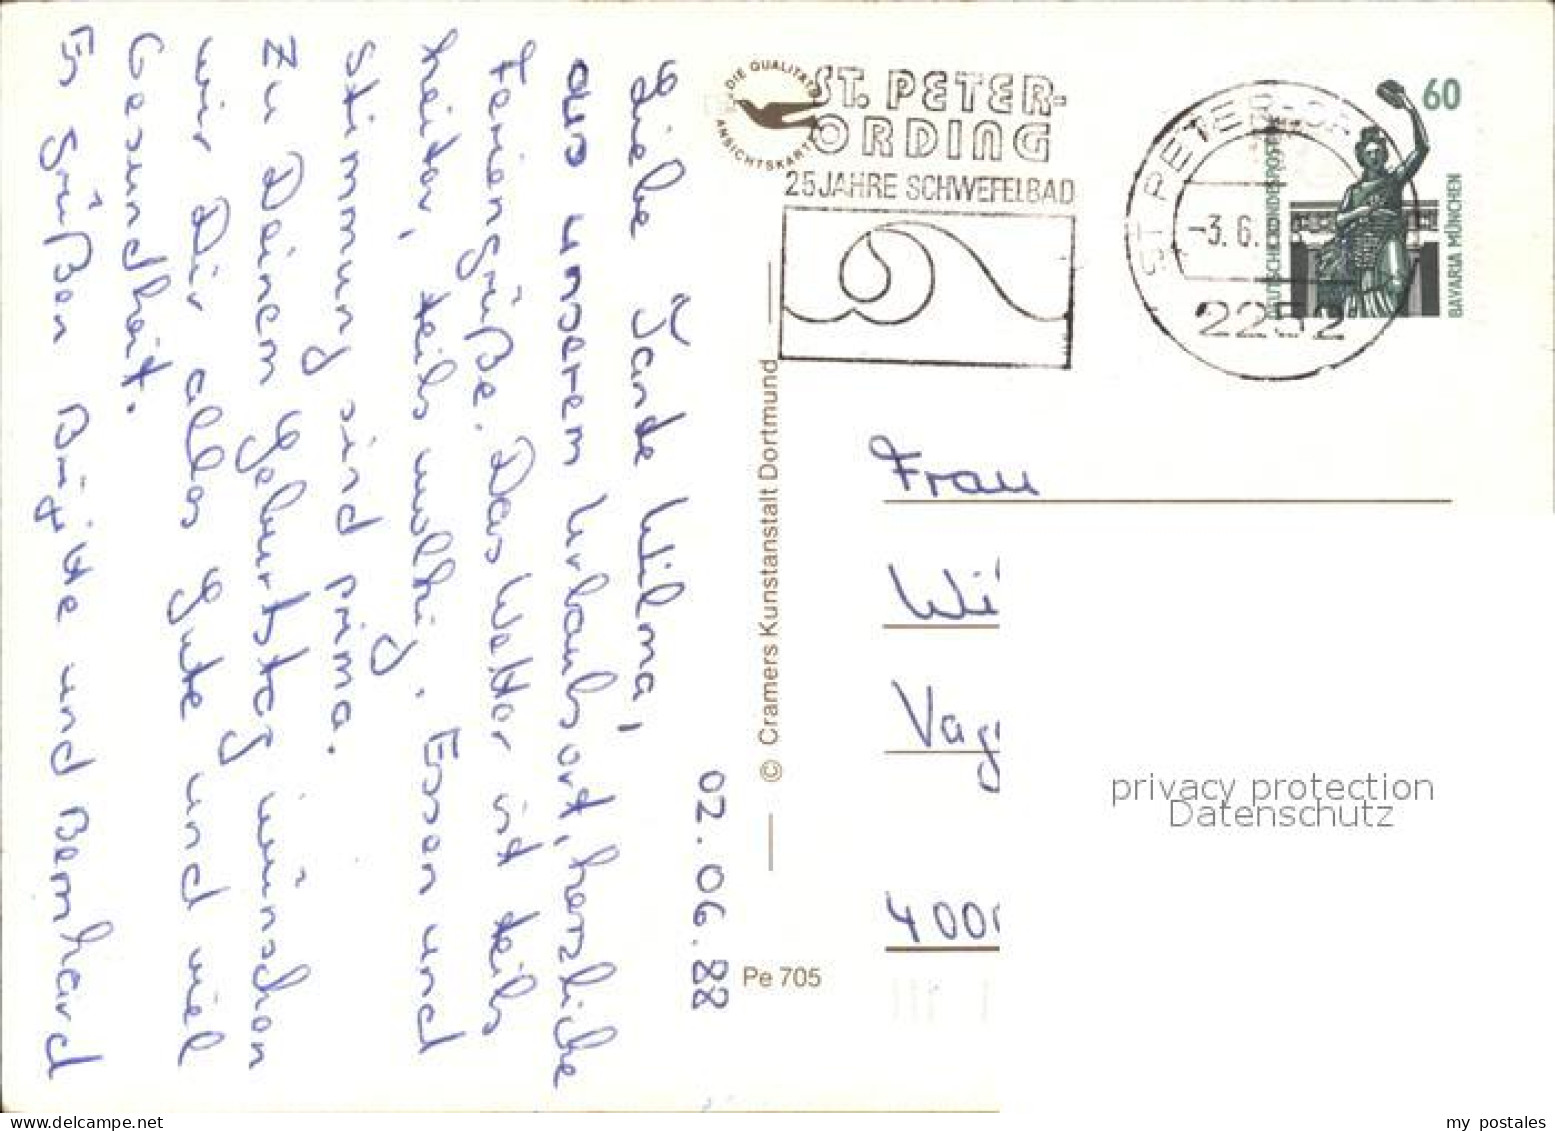 02.06.88
Liebe Tante Wilma,
aus unserem Urlaubsort, herzliche
Feriengrüße. Das Wetter ist teils
heiter, teils wolkig. Essen und
Stimmung sind prima.
Zu Deinem Geburtstag wünschen
wir Dir alles Gute und viel
Gesundheit.
Es grüßen Brigitte und Bernhard
DIE QUALITÄTS
ANSICHTSKARTE
ST. PETER-
ORDING
25 JAHRE SCHWEFELBAD
ST. PETER-OR
-3.6.
2252
60
DEUTSCHE BUNDESPOST
BAVARIA MÜNCHEN
© Cramers Kunstanstalt Dortmund
Pe 705
Frau
Wi
Vag
4000
privacy protection
Datenschutz
my postales